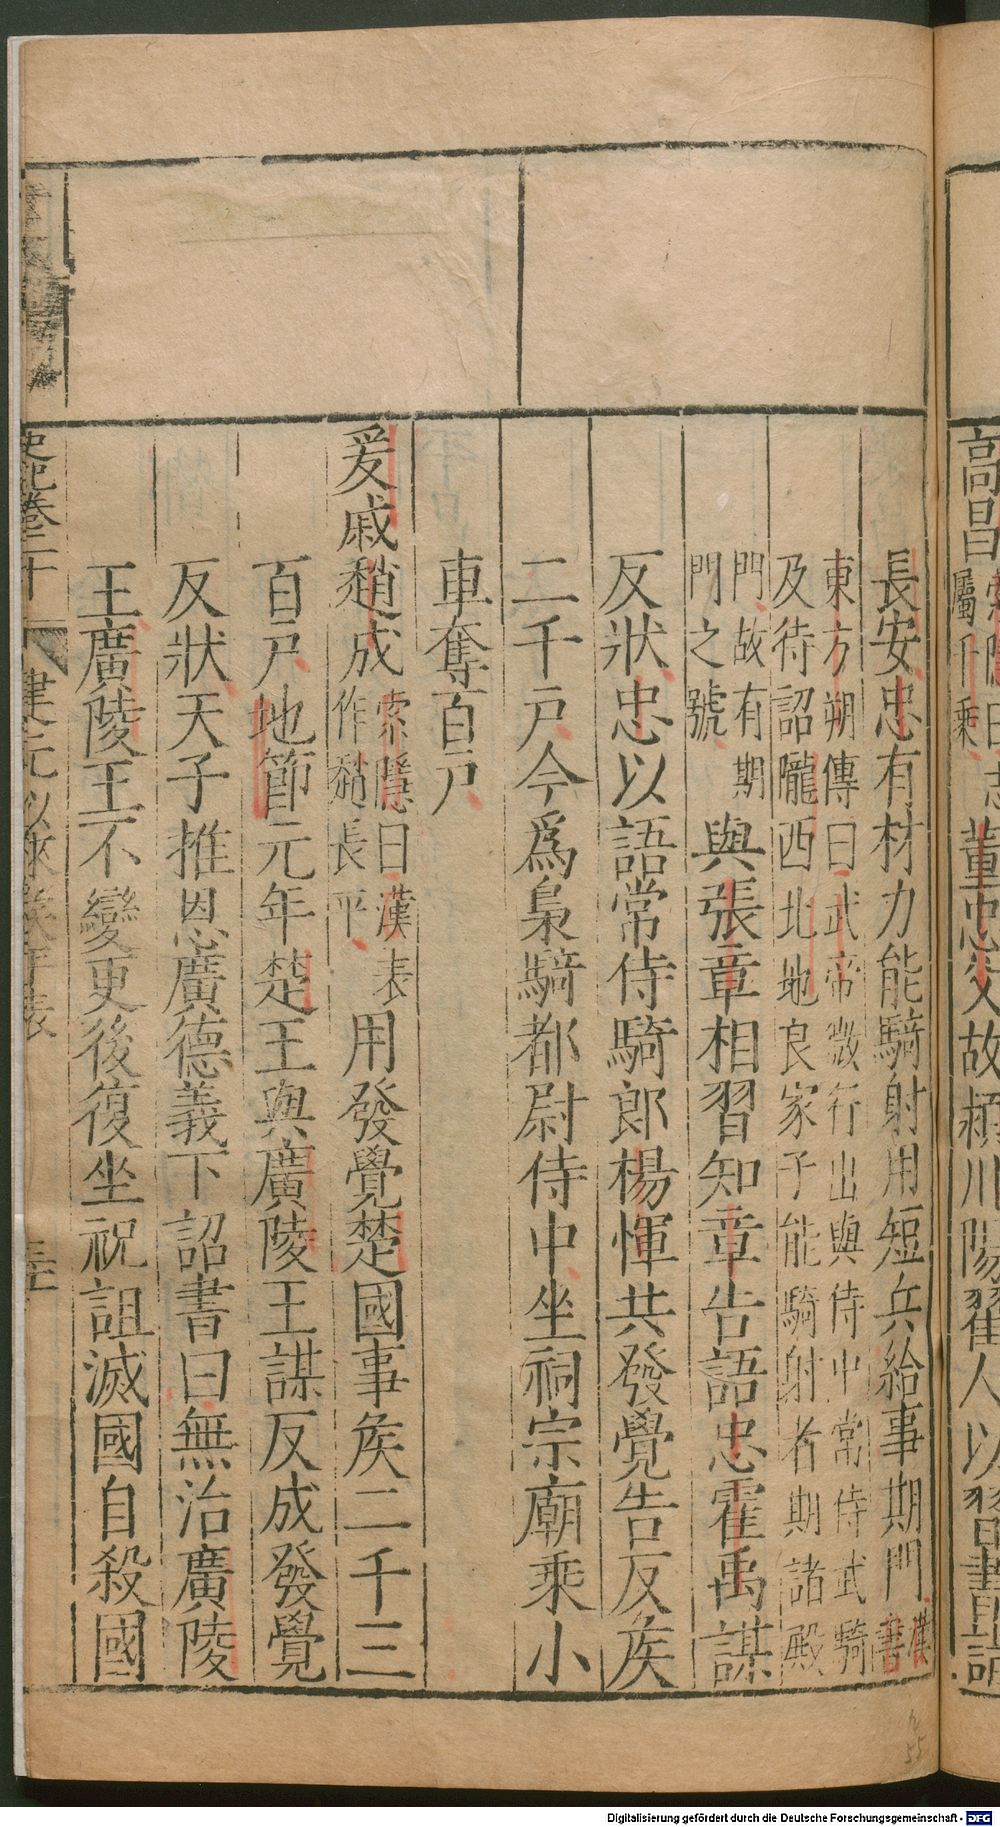 高昌索隱曰志屬千乘董忠父故潁川陽翟人以習書詣
長安忠有材力能騎射用短兵給事期門漢書
東方朔傳曰武帝微行出與侍中常侍武騎
及待詔隴西北地良家子能騎射者期諸殿
門故有期門之號與張章相習知章告語忠霍禹謀
反狀忠以語常侍騎郎楊惲共發覺告反矦
二千戶今爲梟騎都尉侍中坐祠宗廟乘小
車奪百戶
爰戚趙成索隱曰漢表作趙長平用發覺楚國事矦二千三
百戶地節元年楚王與廣陵王謀反成發覺
反狀天子推恩廣德義下詔書曰無治廣陵
王廣陵王不變更後復坐祝詛滅國自殺國
史記卷二十 建元以來矦年表
Digitalisierung gefördert durch die Deutsche Forschungsgemeinschaft - DFG